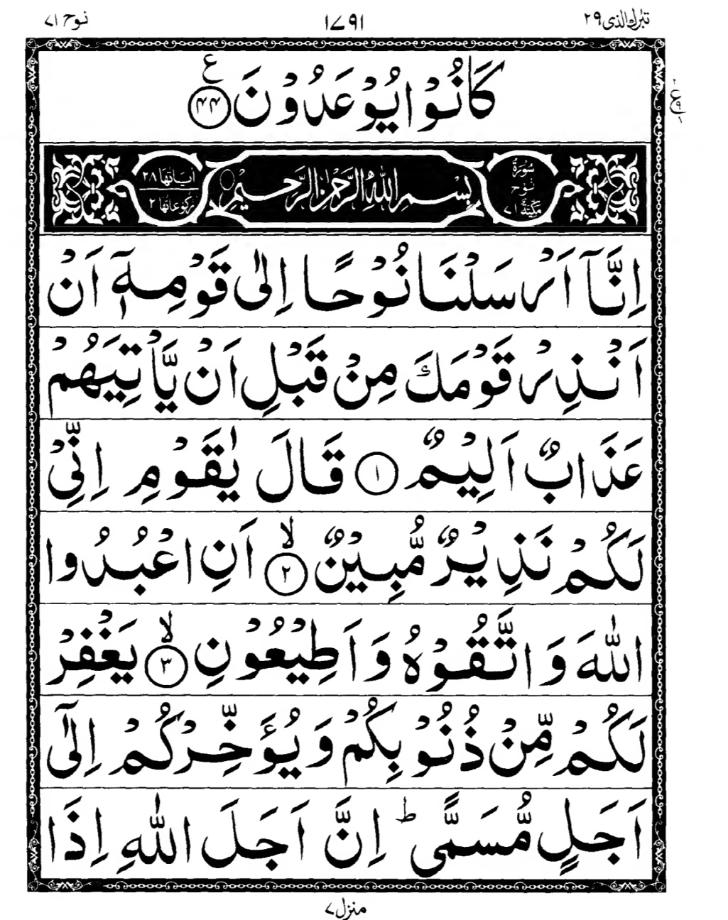 تبٰرك الذی ٢٩
١٧٩١
نوح ٧١
كَانُوْا يُوْعَدُوْنَ ﴿٤٤﴾ ع
ع ٩
سُوْرَةُ نُوْحٍ مَكِّيَّةٌ ٧١
بِسْمِ اللّٰهِ الرَّحْمٰنِ الرَّحِيْمِ
اٰيَاتُهَا ٢٨ رُكُوْعَاتُهَا ٢
اِنَّآ اَرْسَلْنَا نُوْحًا اِلٰى قَوْمِهٖٓ اَنْ
اَنْذِرْ قَوْمَكَ مِنْ قَبْلِ اَنْ يَّاْتِيَهُمْ
عَذَابٌ اَلِيْمٌ ﴿١﴾ قَالَ يٰقَوْمِ اِنِّىْ
لَكُمْ نَذِيْرٌ مُّبِيْنٌ ﴿٢﴾ۙ اَنِ اعْبُدُوا
اللّٰهَ وَاتَّقُوْهُ وَاَطِيْعُوْنِ ﴿٣﴾ۙ يَغْفِرْ
لَكُمْ مِّنْ ذُنُوْبِكُمْ وَيُؤَخِّرْكُمْ اِلٰٓى
اَجَلٍ مُّسَمًّى ؕ اِنَّ اَجَلَ اللّٰهِ اِذَا
منزل ٧